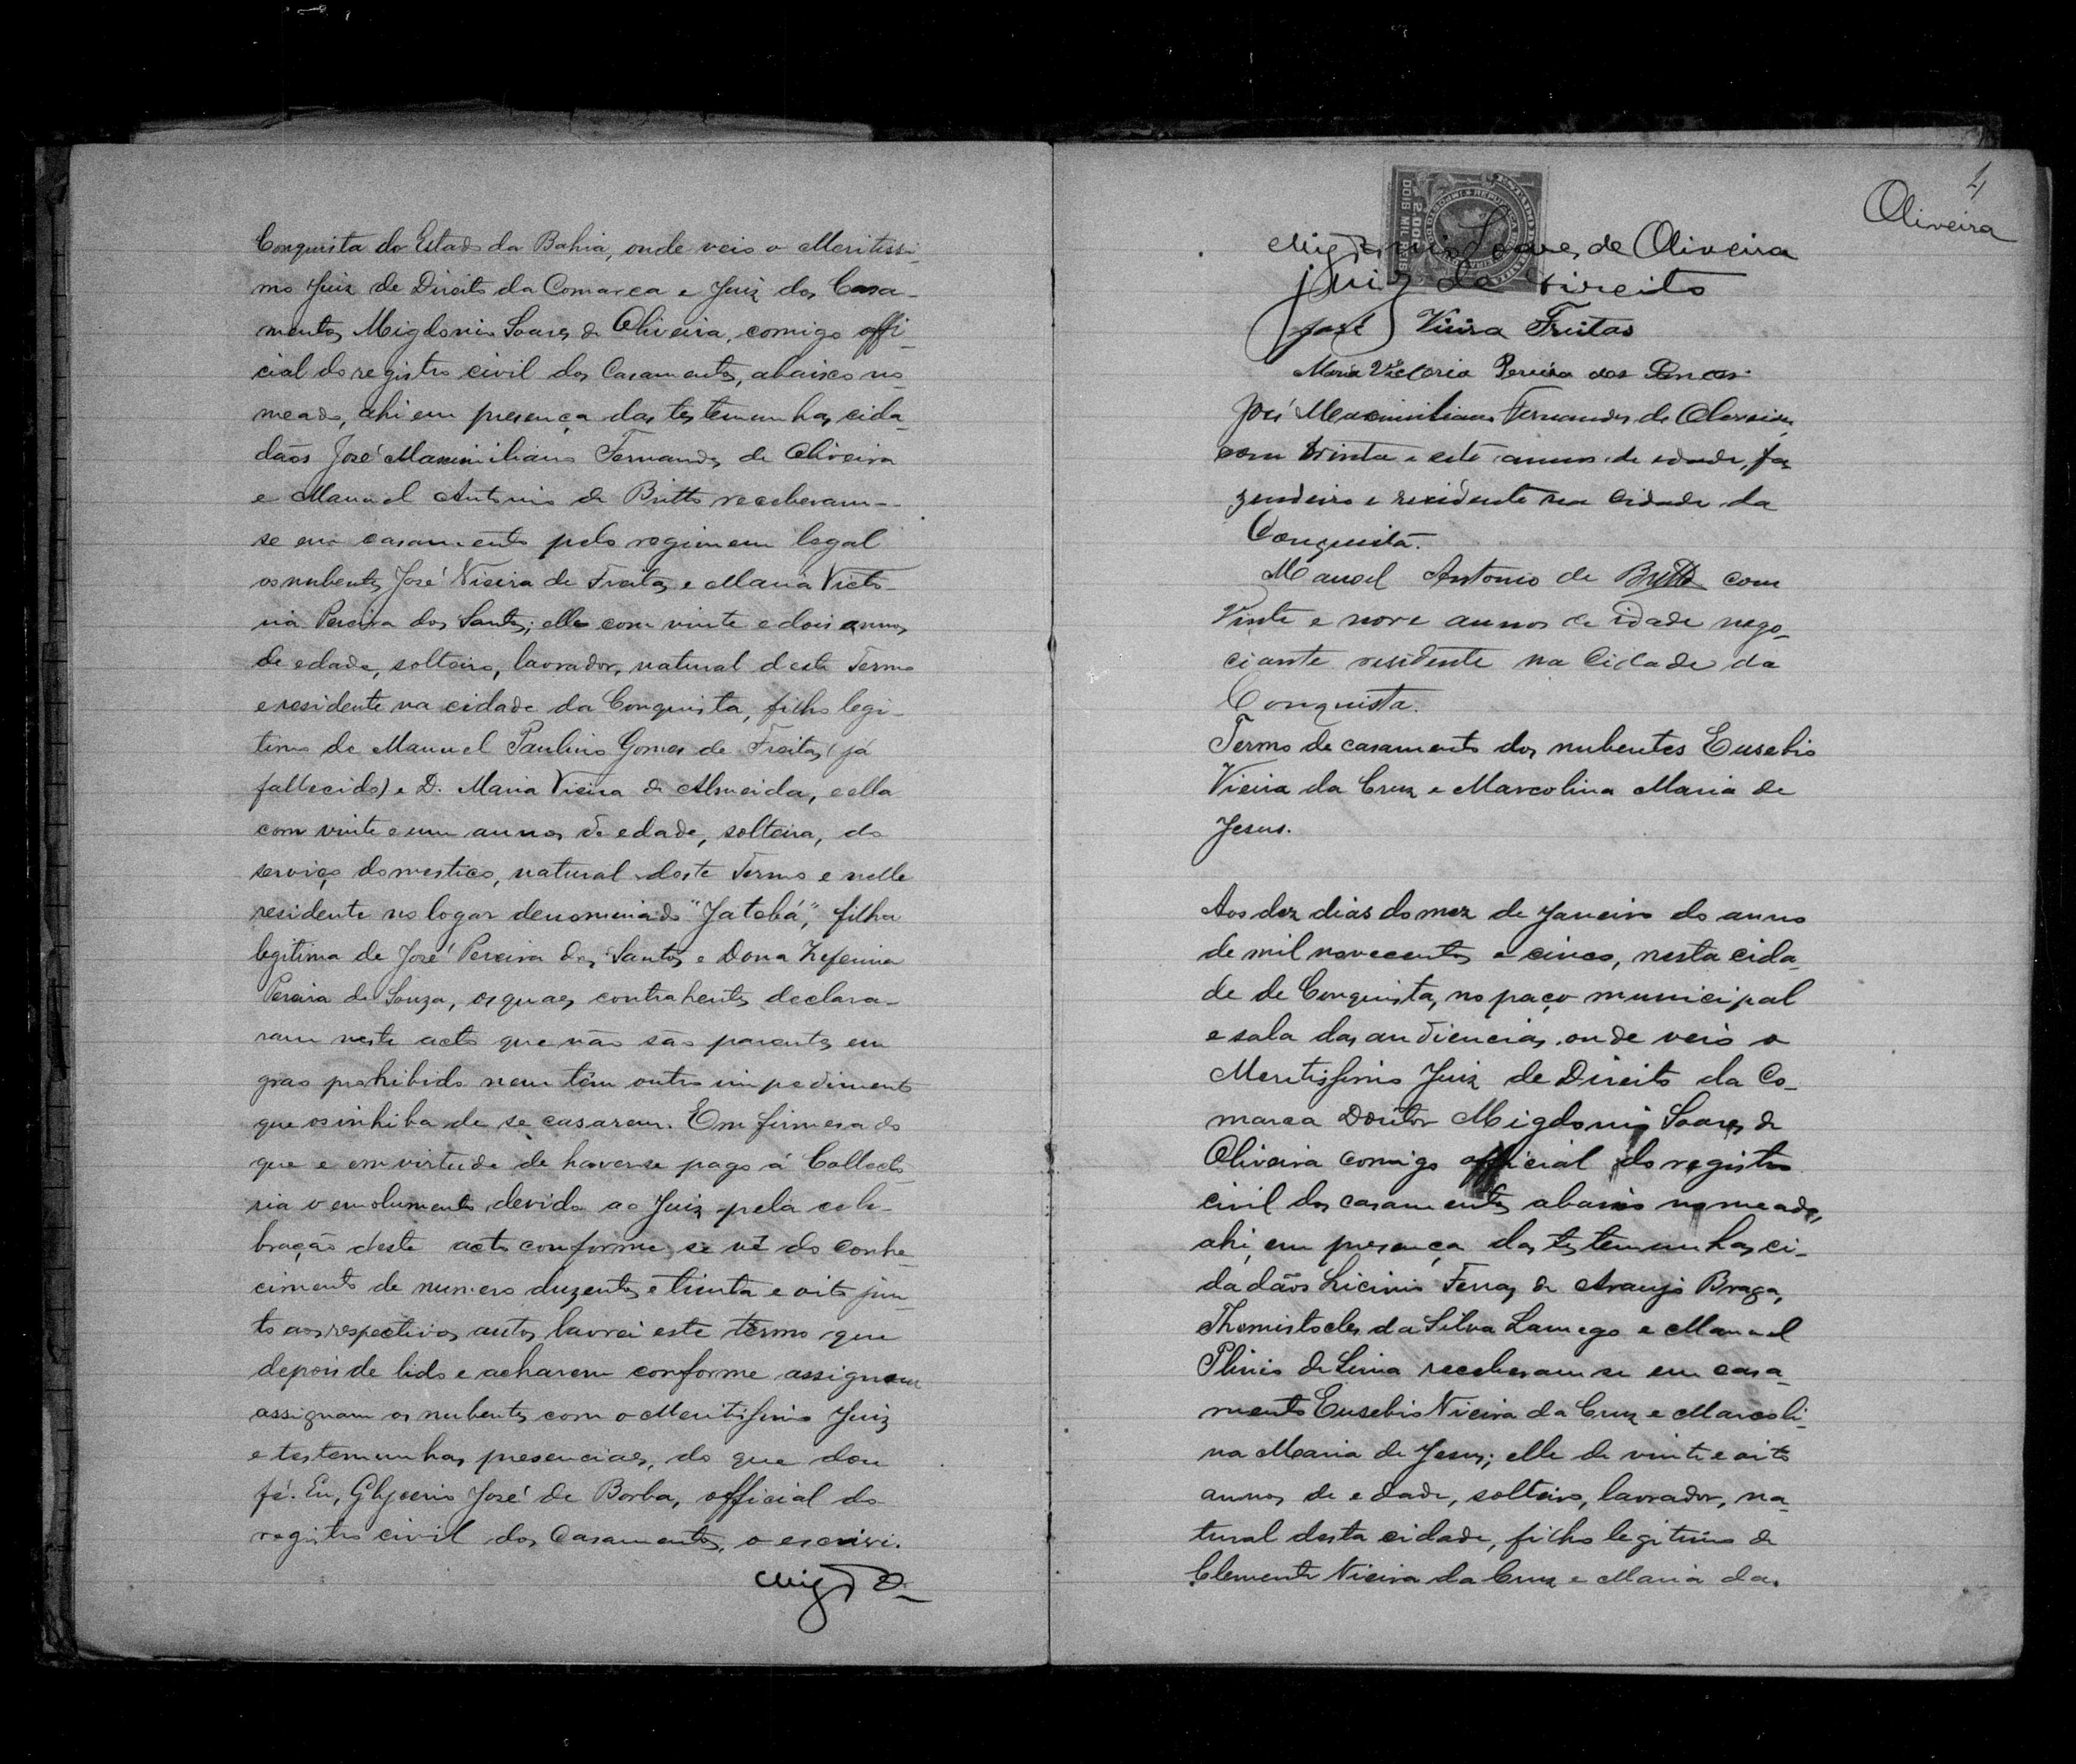 Conquista do Estado da Bahia, onde veio o Meritissi-
mo Juiz de Direito da Comarca e Juiz dos Casa-
mentos Migdonio Soares de Oliveira, comigo offi-
cial do registro civil dos Casamentos, abaixo no-
meado, ahi em presença das testemunhas cida-
dãos José Maximiliano Fernandes de Oliveira
e Manuel Antonio de Britto receberam-
se em casamento pelo regimem legal
os nubentes José Vieira de Freitas e Maria Victo-
ria Pereira dos Santos; elle com vinte e dois annos
de edade, solteiro, lavrador, natural deste Termo
e residente na cidade da Conquista, filho legi-
timo de Manuel Paulino Gomes de Freitas (já
fallecido) e D. Maria Vieira de Almeida, e ella
com vinte e um annos de edade, solteira, do
serviço domestico, natural deste Termo e nelle
residente no logar denominado "Jatobá", filha
legitima de José Pereira dos Santos e Dona Zeferina
Pereira de Souza, os quaes contrahentes declara-
ram neste acto que não são parentes em
grao prohibido nem têm outro impedimento
que os inhiba de se casarem. Em firmesa do
que e em virtude de haver-se pago á Collecto
ria o emolumento devido ao Juiz pela cele-
bração deste acto conforme se vê do conhe-
cimento de numero duzentos e trinta e oito jun-
to aos respectivos autos lavrei este termo que
depois de lido e acharem conforme assignam
assignam os nubentes com o Meritissimo Juiz
e testemunhas presenciaes, do que dou
fé. Eu, Glycerio José de Borba, official do
registro civil dos Casamentos, o escrivi.
4
Oliveira
DOIS MIL REIS
2.000
Migdonio Soares de Oliveira
Juiz de Direito
José Vieira Freitas
Maria Victoria Pereira dos
José Maximiliano Fernandes de Oliveira
com trinta e sete annos de edade, fa
zendeiro e residente na Cidade da
Conquista.
Manoel Antonio de Britto com
Vinte e nove annos de idade nego-
ciante residente na Cidade da
Conquista.
Termo de casamento dos nubentes Eusebio
Vieira da Cruz e Marcolina Maria de
Jesus.
Aos dez dias do mez de Janeiro do anno
de mil novecentos e cinco, nesta cida-
de de Conquista, no paço municipal
e sala das audiencias, onde veio o
Meritissimo Juiz de Direito da Co-
marca Doutor Migdonio Soares de
Oliveira comigo official do registro
civil dos casamentos abaixo nomeado,
ahi, em presença das testemunhas ci-
dadãos Licinio Ferraz de Araujo Braga,
Themistocles da Silva Lamego e Manuel
Plinio de Lima receberam se em casa-
mento Eusebio Vieira da Cruz e Marcoli-
na Maria de Jesus; elle de vinte e oito
annos de edade, solteiro, lavrador, na-
tural desta cidade, filho legitimo de
Clemente Vieira da Cruz e Maria da